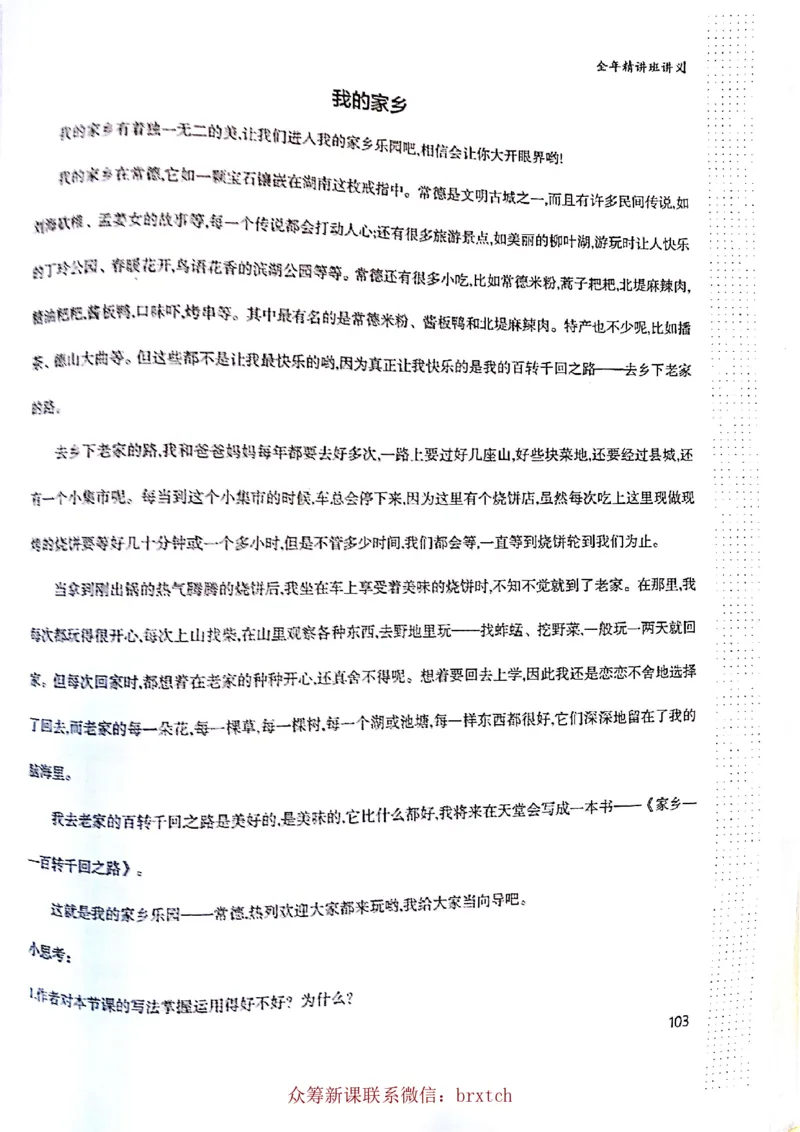 全年精讲班讲义
我的家乡
我的家乡有着独一无二的美,让我们进入我的家乡乐园吧,相信会让你大开眼界哟!
我的家乡在常德,它如一颗宝石镶嵌在湖南这枚戒指中。常德是文明古城之一,而且有许多民间传说,如
刘海砍樵、孟姜女的故事等,每一个传说都会打动人心;还有很多旅游景点,如美丽的柳叶湖,游玩时让人快乐
的丁玲公园、春暖花开,鸟语花香的滨湖公园等等。常德还有很多小吃,比如常德米粉,蒿子粑粑,北堤麻辣肉,
糖油粑粑,酱板鸭,口味虾,烤串等。其中最有名的是常德米粉、酱板鸭和北堤麻辣肉。特产也不少呢,比如擂
茶、德山大曲等。但这些都不是让我最快乐的哟,因为真正让我快乐的是我的百转千回之路——去乡下老家
的路。
去乡下老家的路,我和爸爸妈妈每年都要去好多次,一路上要过好几座山,好些块菜地,还要经过县城,还
有一个小集市呢。每当到这个小集市的时候,车总会停下来,因为这里有个烧饼店,虽然每次吃上这里现做现
烤的烧饼要等好几十分钟或一个多小时,但是不管多少时间,我们都会等,一直等到烧饼轮到我们为止。
当拿到刚出锅的热气腾腾的烧饼后,我坐在车上享受着美味的烧饼时,不知不觉就到了老家。在那里,我
每次都玩得很开心,每次上山找柴,在山里观察各种东西,去野地里玩——找蚱蜢、挖野菜,一般玩一两天就回
家。但每次回家时,都想着在老家的种种开心,还真舍不得呢。想着要回去上学,因此我还是恋恋不舍地选择
了回去,而老家的每一朵花,每一棵草,每一棵树,每一个湖或池塘,每一样东西都很好,它们深深地留在了我的
脑海里。
我去老家的百转千回之路是美好的,是美味的,它比什么都好,我将来在天堂会写成一本书——《家乡—
—百转千回之路》。
这就是我的家乡乐园——常德,热列欢迎大家都来玩哟,我给大家当向导吧。
小思考:
1.作者对本节课的写法掌握运用得好不好?为什么?
103
众筹新课联系微信:brxtch